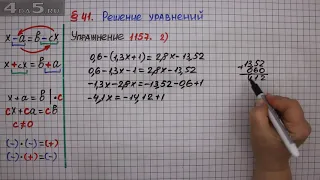 4
5
§ 41. Решение уравнений
Упражнение 1157. 2)
x - a = b - cx
x + cx = b + a
x + a = b | · c
cx + ca = cb
c ≠ 0
(-) · (-) = (+)
(-) · (+) = (-)
0,6 - (1,3x + 1) = 2,8x - 13,52
0,6 - 1,3x - 1 = 2,8x - 13,52
-1,3x - 2,8x = -13,52 - 0,6 + 1
-4,1x = -14,12 + 1
+ 13,52
0,60